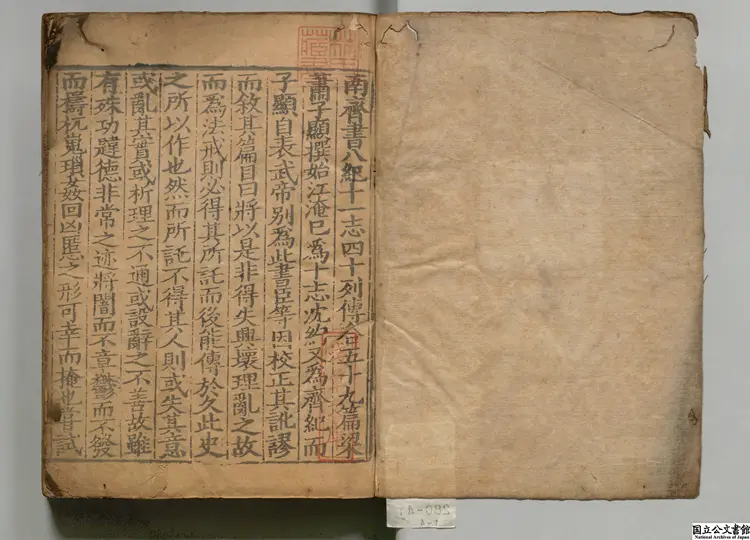 南齊書八紀十一志四十列傳合五十九篇梁
蕭子顯撰始江淹巳爲十志沈約又爲齊紀而
子顯自表武帝别爲此書臣等因校正其訛謬
而敘其篇目曰將以是非得失興壞理亂之故
而爲法戒則必得其所託而後能傳於久此史
之所以作也然而所託不得其人則或失其意
或亂其實或析理之不通或設辭之不善故雖
有殊功韙德非常之迹將闇而不章鬱而不發
而檮杌嵬瑣姦回凶慝之形可幸而掩也嘗試
国立公文書館
National Archives of Japan